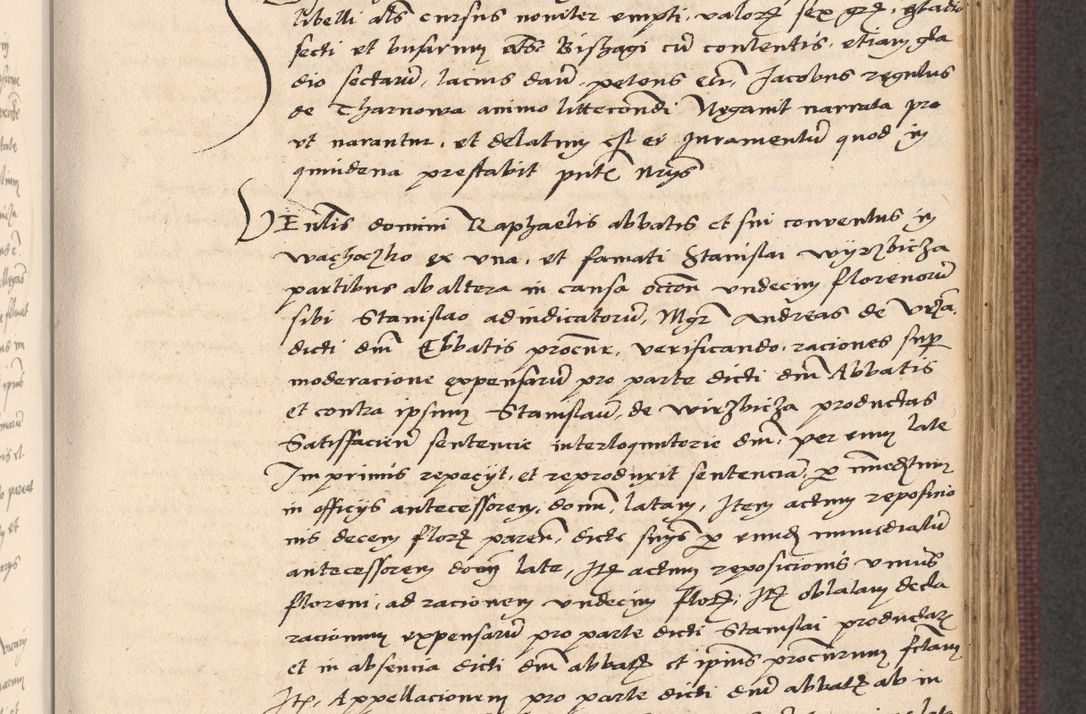 libelli als cursus noviter empti, valor sex gr,
secti et busarum als Biszagi cu contentis, etiam gla
dio sectaru, lacius dau, petens eu, Jacobus regulus
de Tharnowa animo littecondi Negavit narrata pro
ut narantur, et delatum est ei Juramentu quod in
quindena prestabit pnte nris
VEnlis domini Raphaelis abbatis et sui conventus in
Wachoczko ex una, et famati Stanislai Wyrzbicza
partibus ab altera in causa octon undecim florenoru
sibi Stanislao adiudicatoru, Mgr Andreas de
dicti dni Abbatis procur, verificando, raciones sup
moderacione expensaru pro parte dicti dni Abbatis
et contra ipsum Stanislau, de Wirzbicza productas
Satisfaciens sentencie interloqutorie dni, per eum late
Imprimis repeyt, et reproduxit sentencia, p
in officys antecessorem, domi, latam, Item actum reposicio
nis decem flor paren, dicte p eund immediatu
antecessorem latе, It actum reposicionis unius
floreni, ad racionem undecim flor, It oblatam decla
racionum expensaru pro parte dicti Stanislai productar
et in absencia dicti dni abbatis et ipius procurrum fctam
Ite, Appellacionem pro parte dicti dni abbat ab in